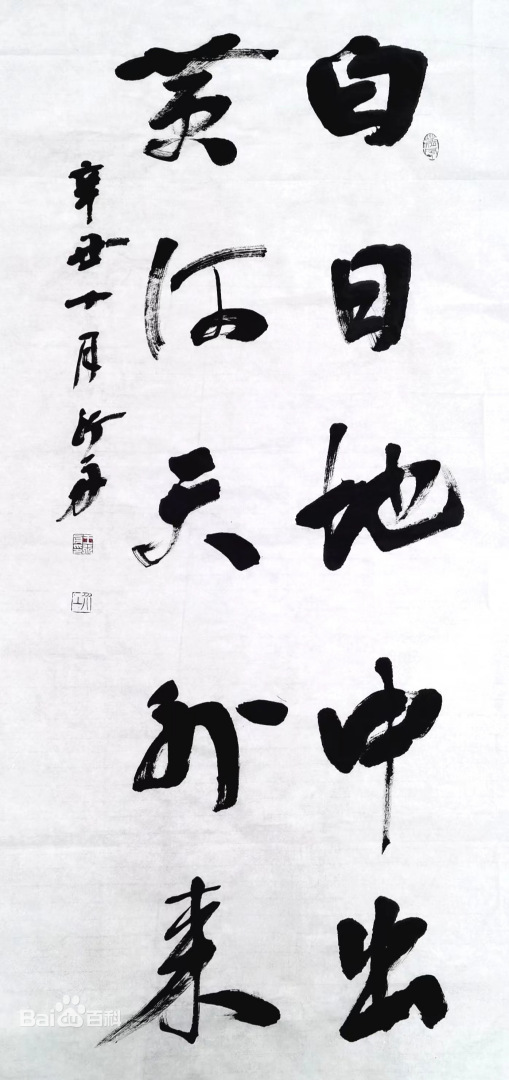 白日地中出
黄河天外来
辛丑十月
Bai百科